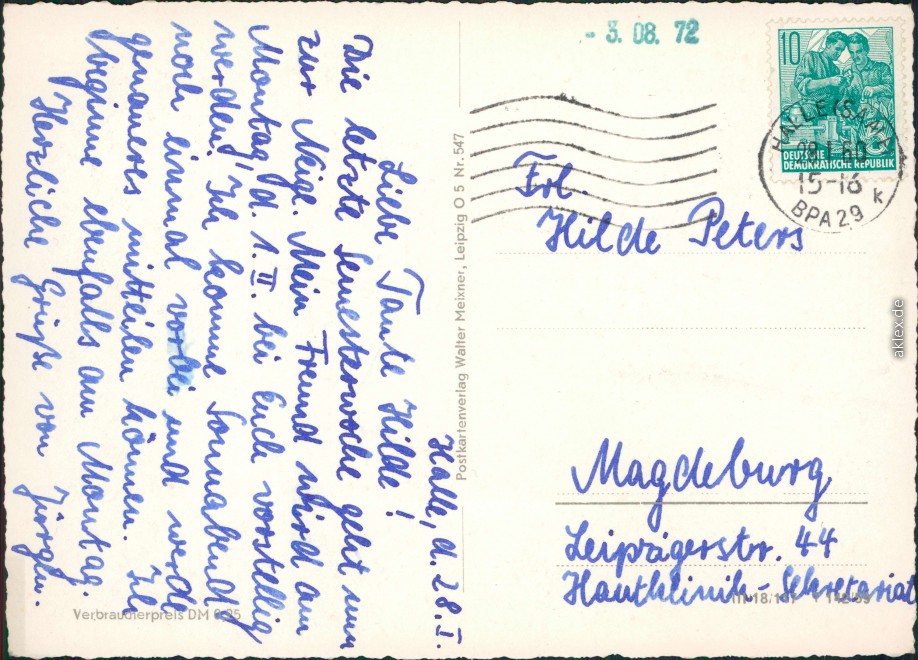 Halle, d. 28. I.
Liebe Tante Hilde!
Die letzte Semesterwoche geht nun
zur Neige. Mein Freund wird am
Montag d. 1. II. bei Euch vorstellig
werden. Ich komme Sonnabend
noch einmal vorbei und werde
genaueres mitteilen können. Ich
beginne ebenfalls am Montag.
Herzliche Grüße von Jürgen.
Verbraucherpreis DM 0.25
Postkartenverlag Walter Meixner, Leipzig O 5 Nr. 547
- 3. 08. 72
10
DEUTSCHE
DEMOKRATISCHE REPUBLIK
HALLE (SAALE)
15-16
BPA 29 k
Frl.
Hilde Peters
Magdeburg
Leipzigerstr. 44
Hautklinik-Sekretariat
aklex.de